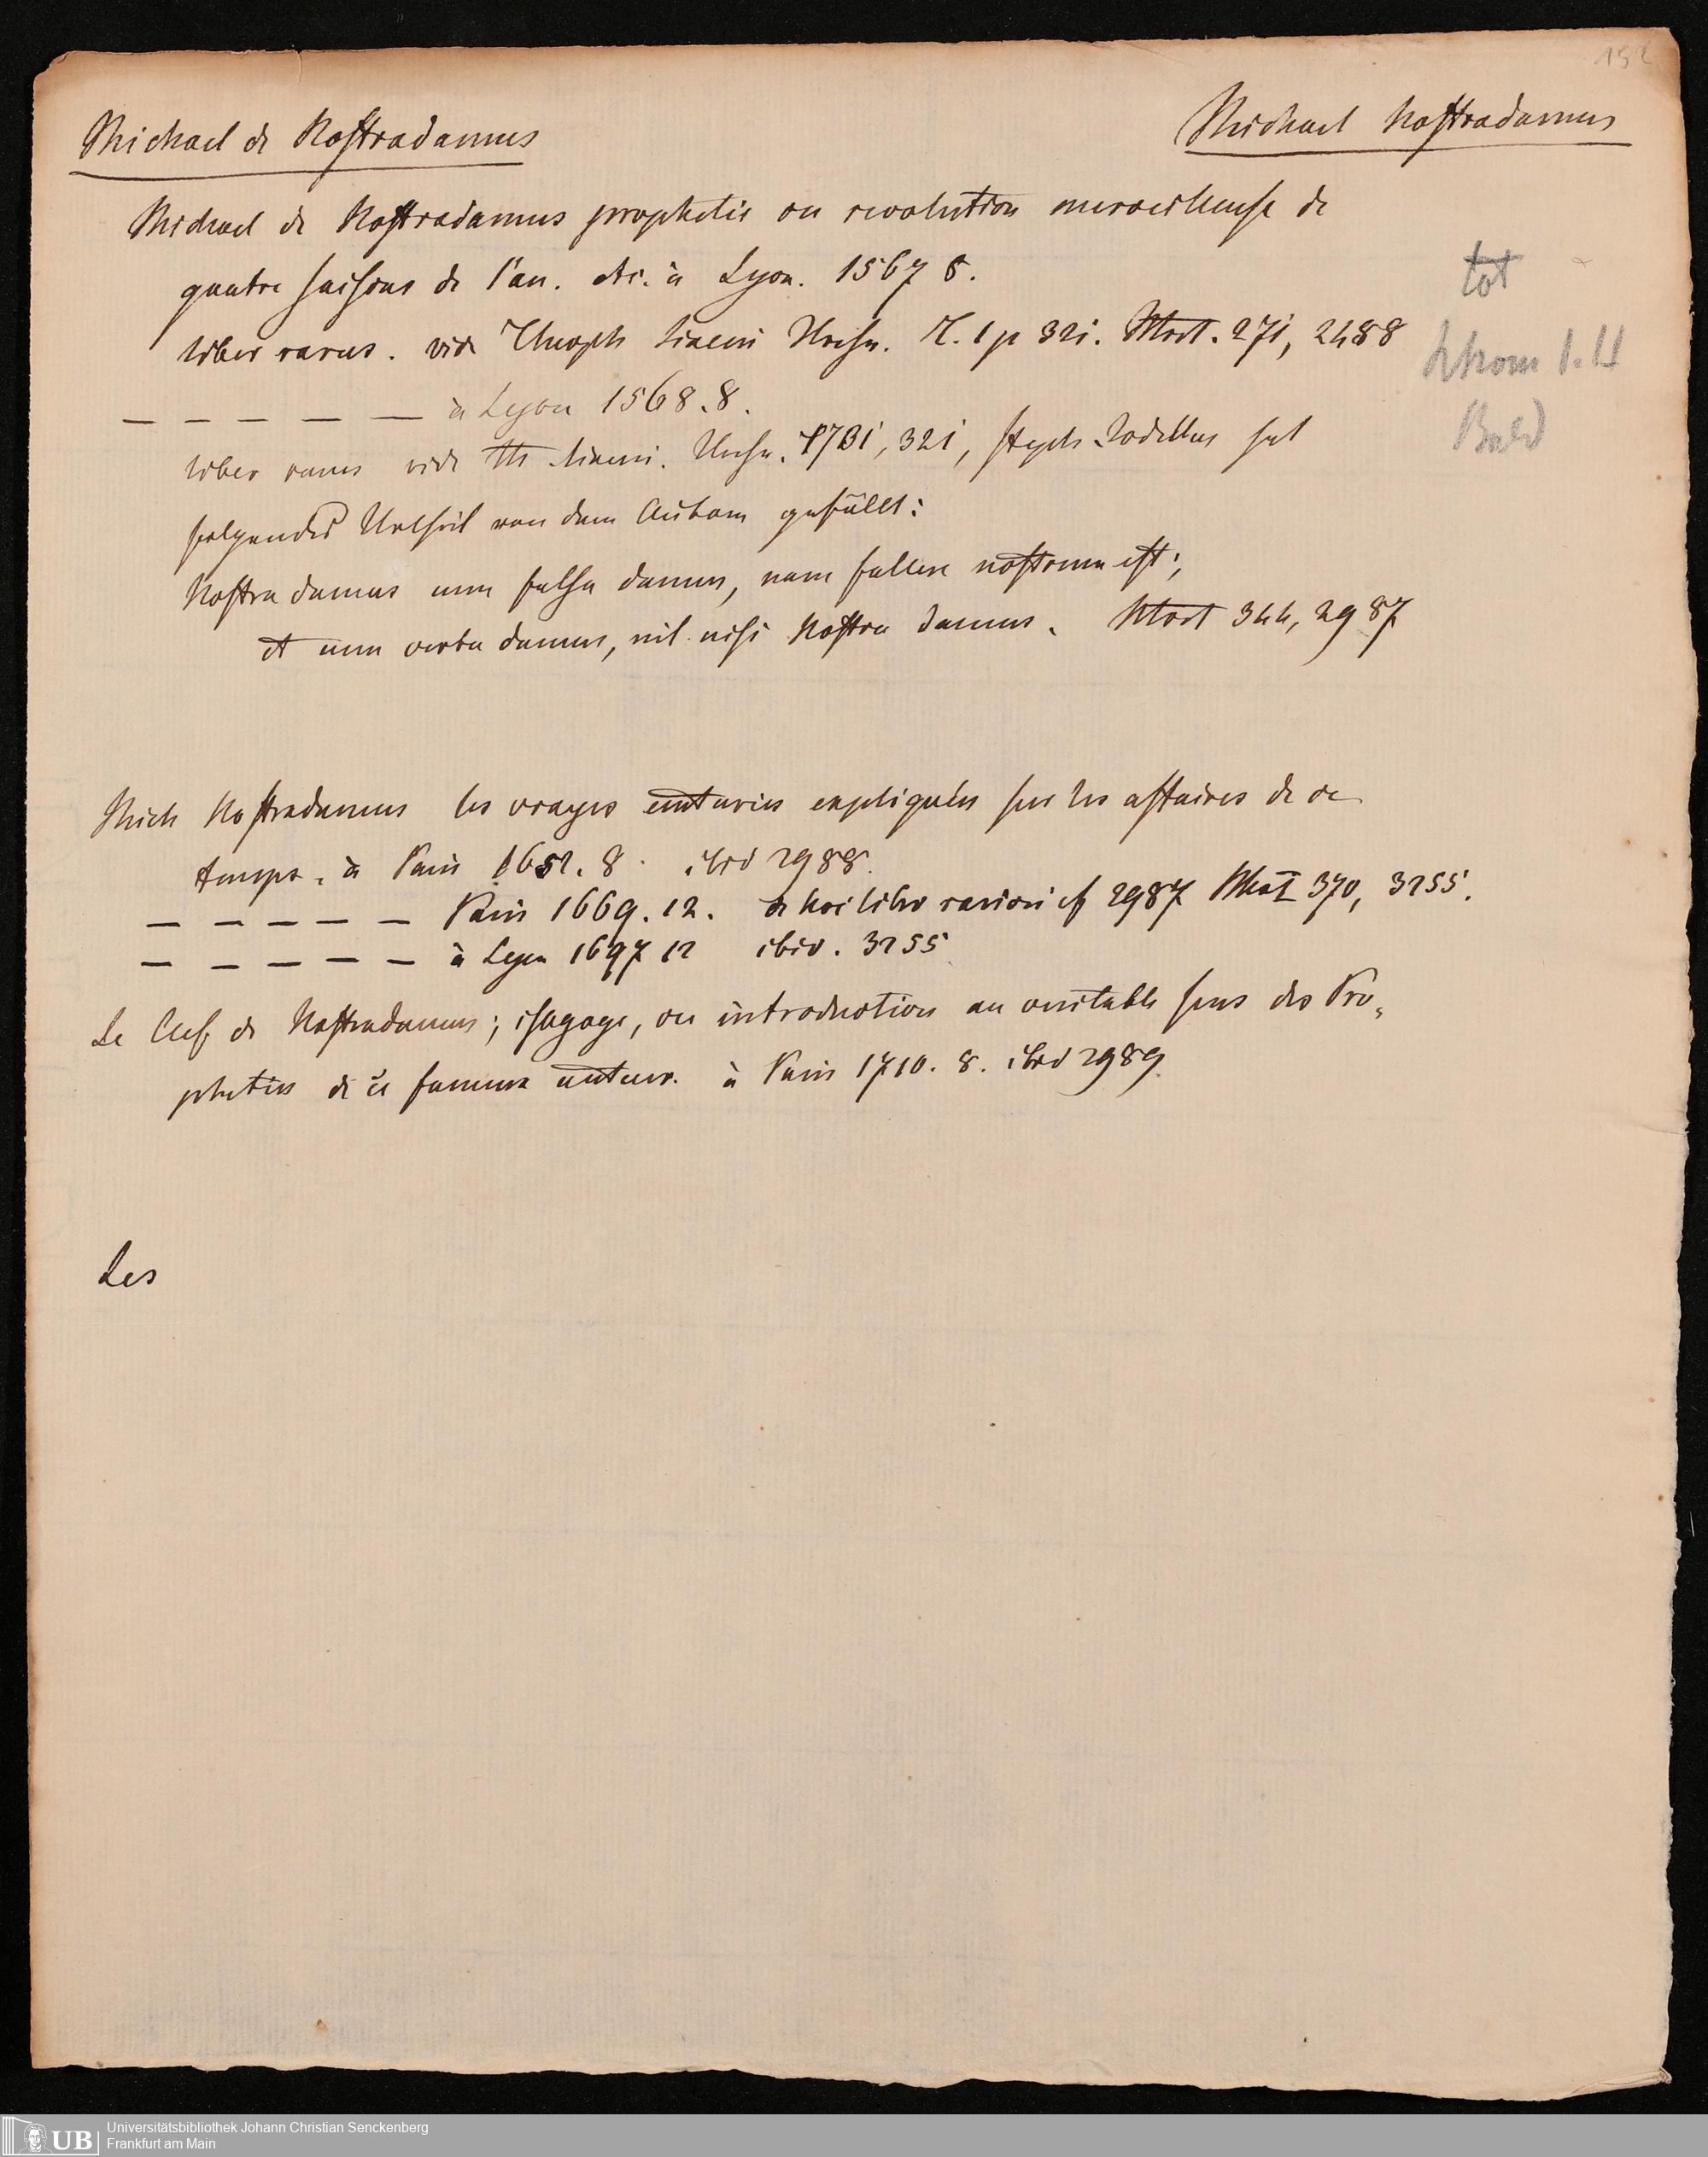 152
Michael de Nostradamus
Michael Nostradamus
Michael de Nostradamus prophetie ou revolution merveilleuse de
quatre saisons de l'an. etc. à Lyon. 1567 8.
liber rarus. vide Theoph Sinceri p 321. 271, 2488
tot
— — — — — à Lyon 1568. 8.
liber rarus vide Th Sinceri. 321, Steph. Jodellus hat
folgendes Urtheil von dem Autore gefällt:
Nostra damus cum falsa damus, nam fallere nostrum est;
et cum verba damus, nil nisi Nostra damus. 344, 2987
Mich Nostradamus les vrayes centuries expliquées sur les affaires de ce
temps. à Paris 1652. 8. ibid 2988.
— — — — — Paris 1669. 12. de hoc libro rariori cf 2987 370, 3255.
— — — — — à Lyon 1697 12 ibid. 3255
Le Clef de Nostradamus; isagoge, ou introduction au veritable sens des Pro-
pheties de ce fameux auteur. à Paris 1710. 8. ibid 2989.
Les
UB
Universitätsbibliothek Johann Christian Senckenberg
Frankfurt am Main